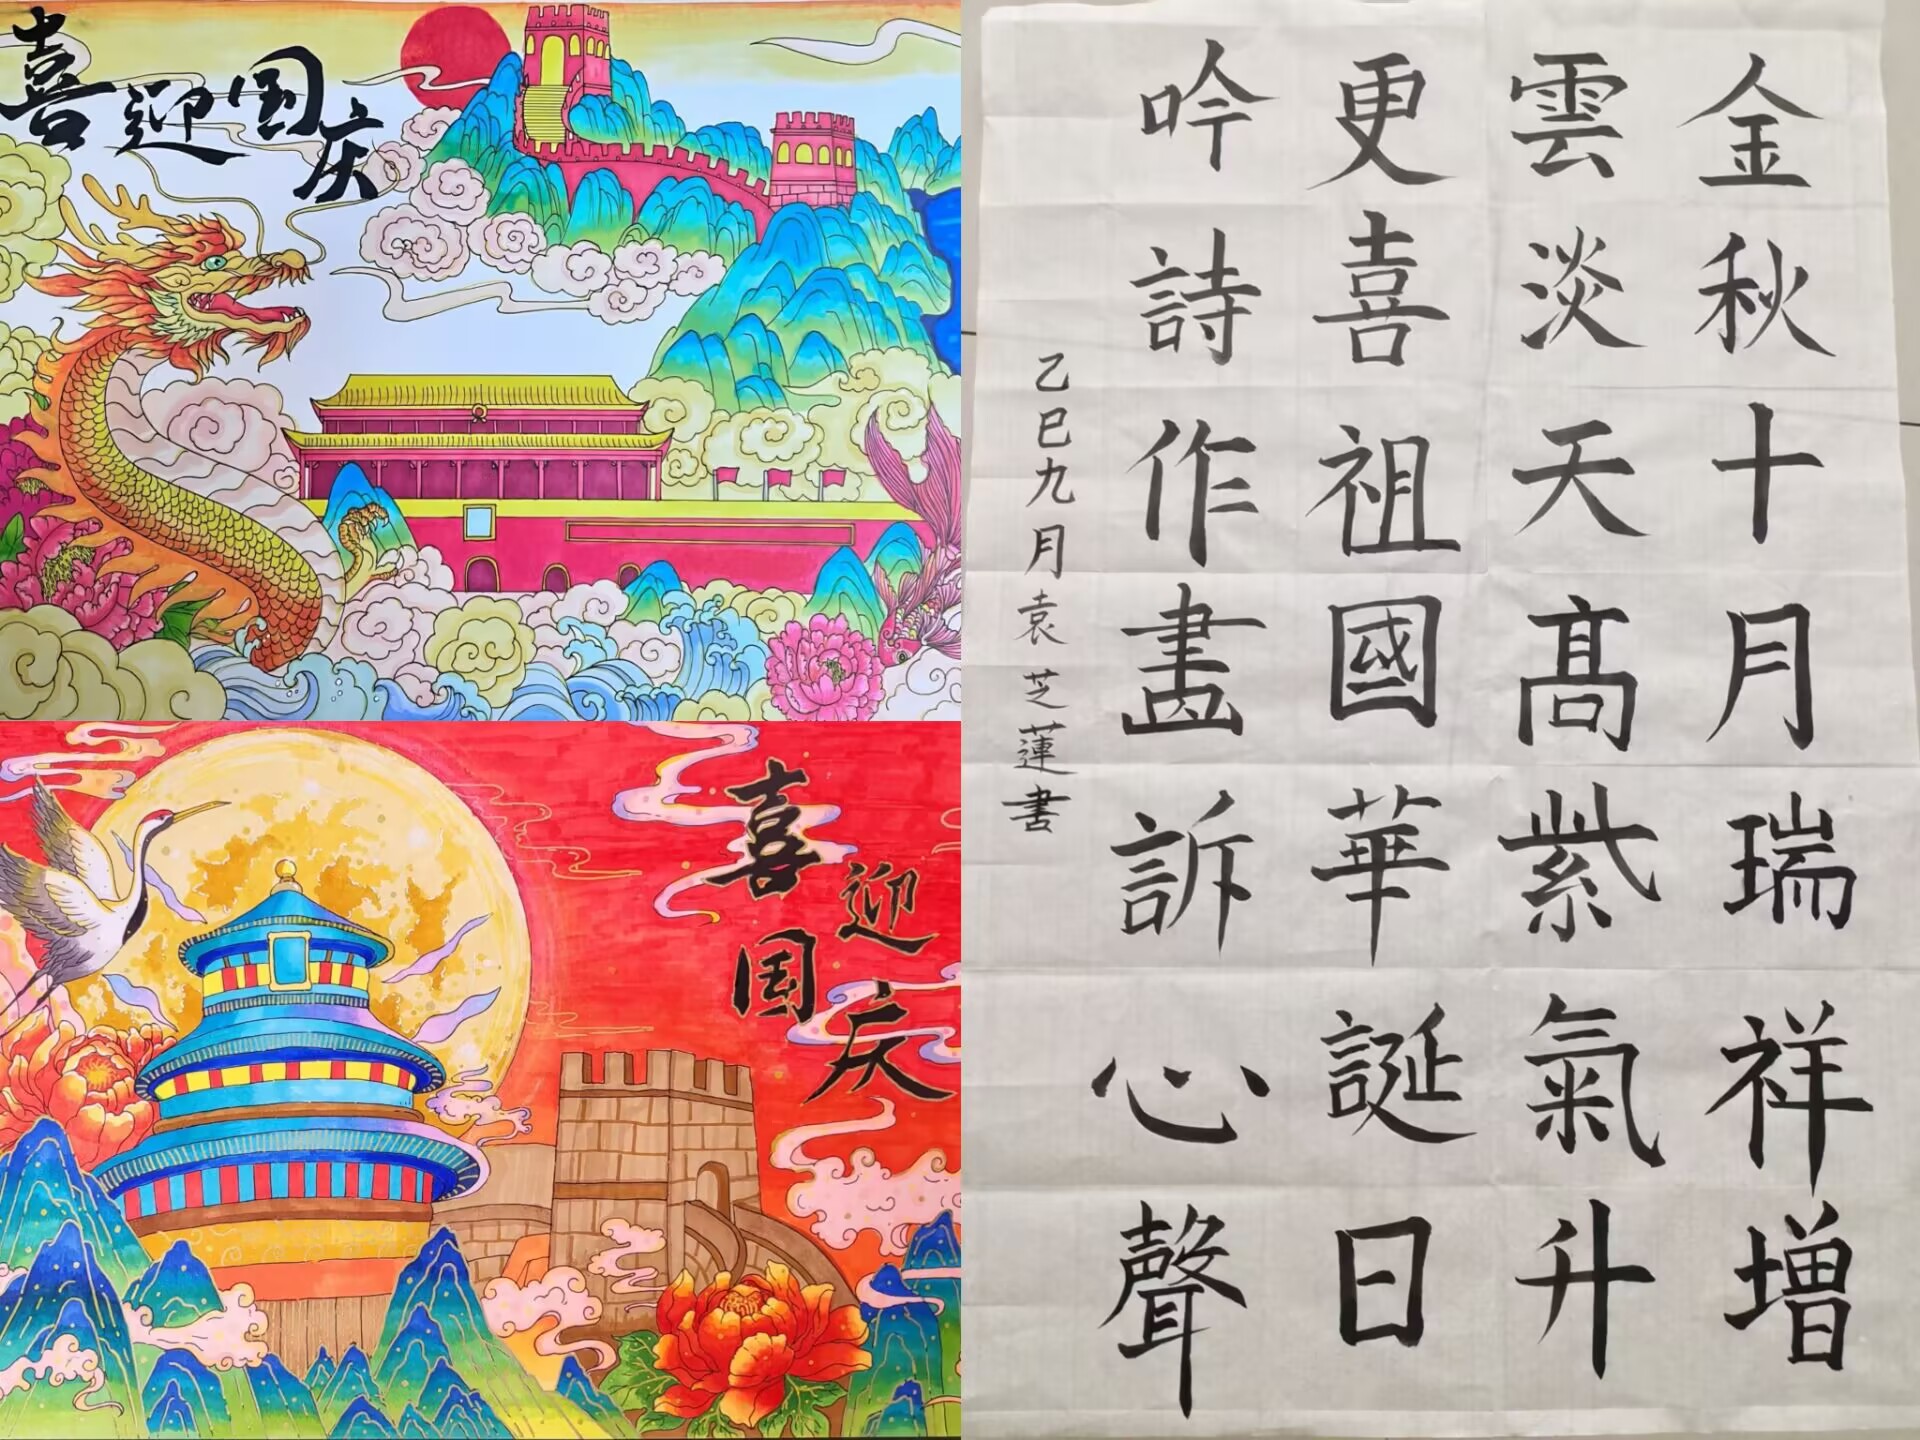 喜迎国庆
喜迎国庆
金秋十月瑞祥增
雲淡天高紫氣升
更喜祖國華誕日
吟詩作畫訴心聲
乙巳九月袁芝蓮書